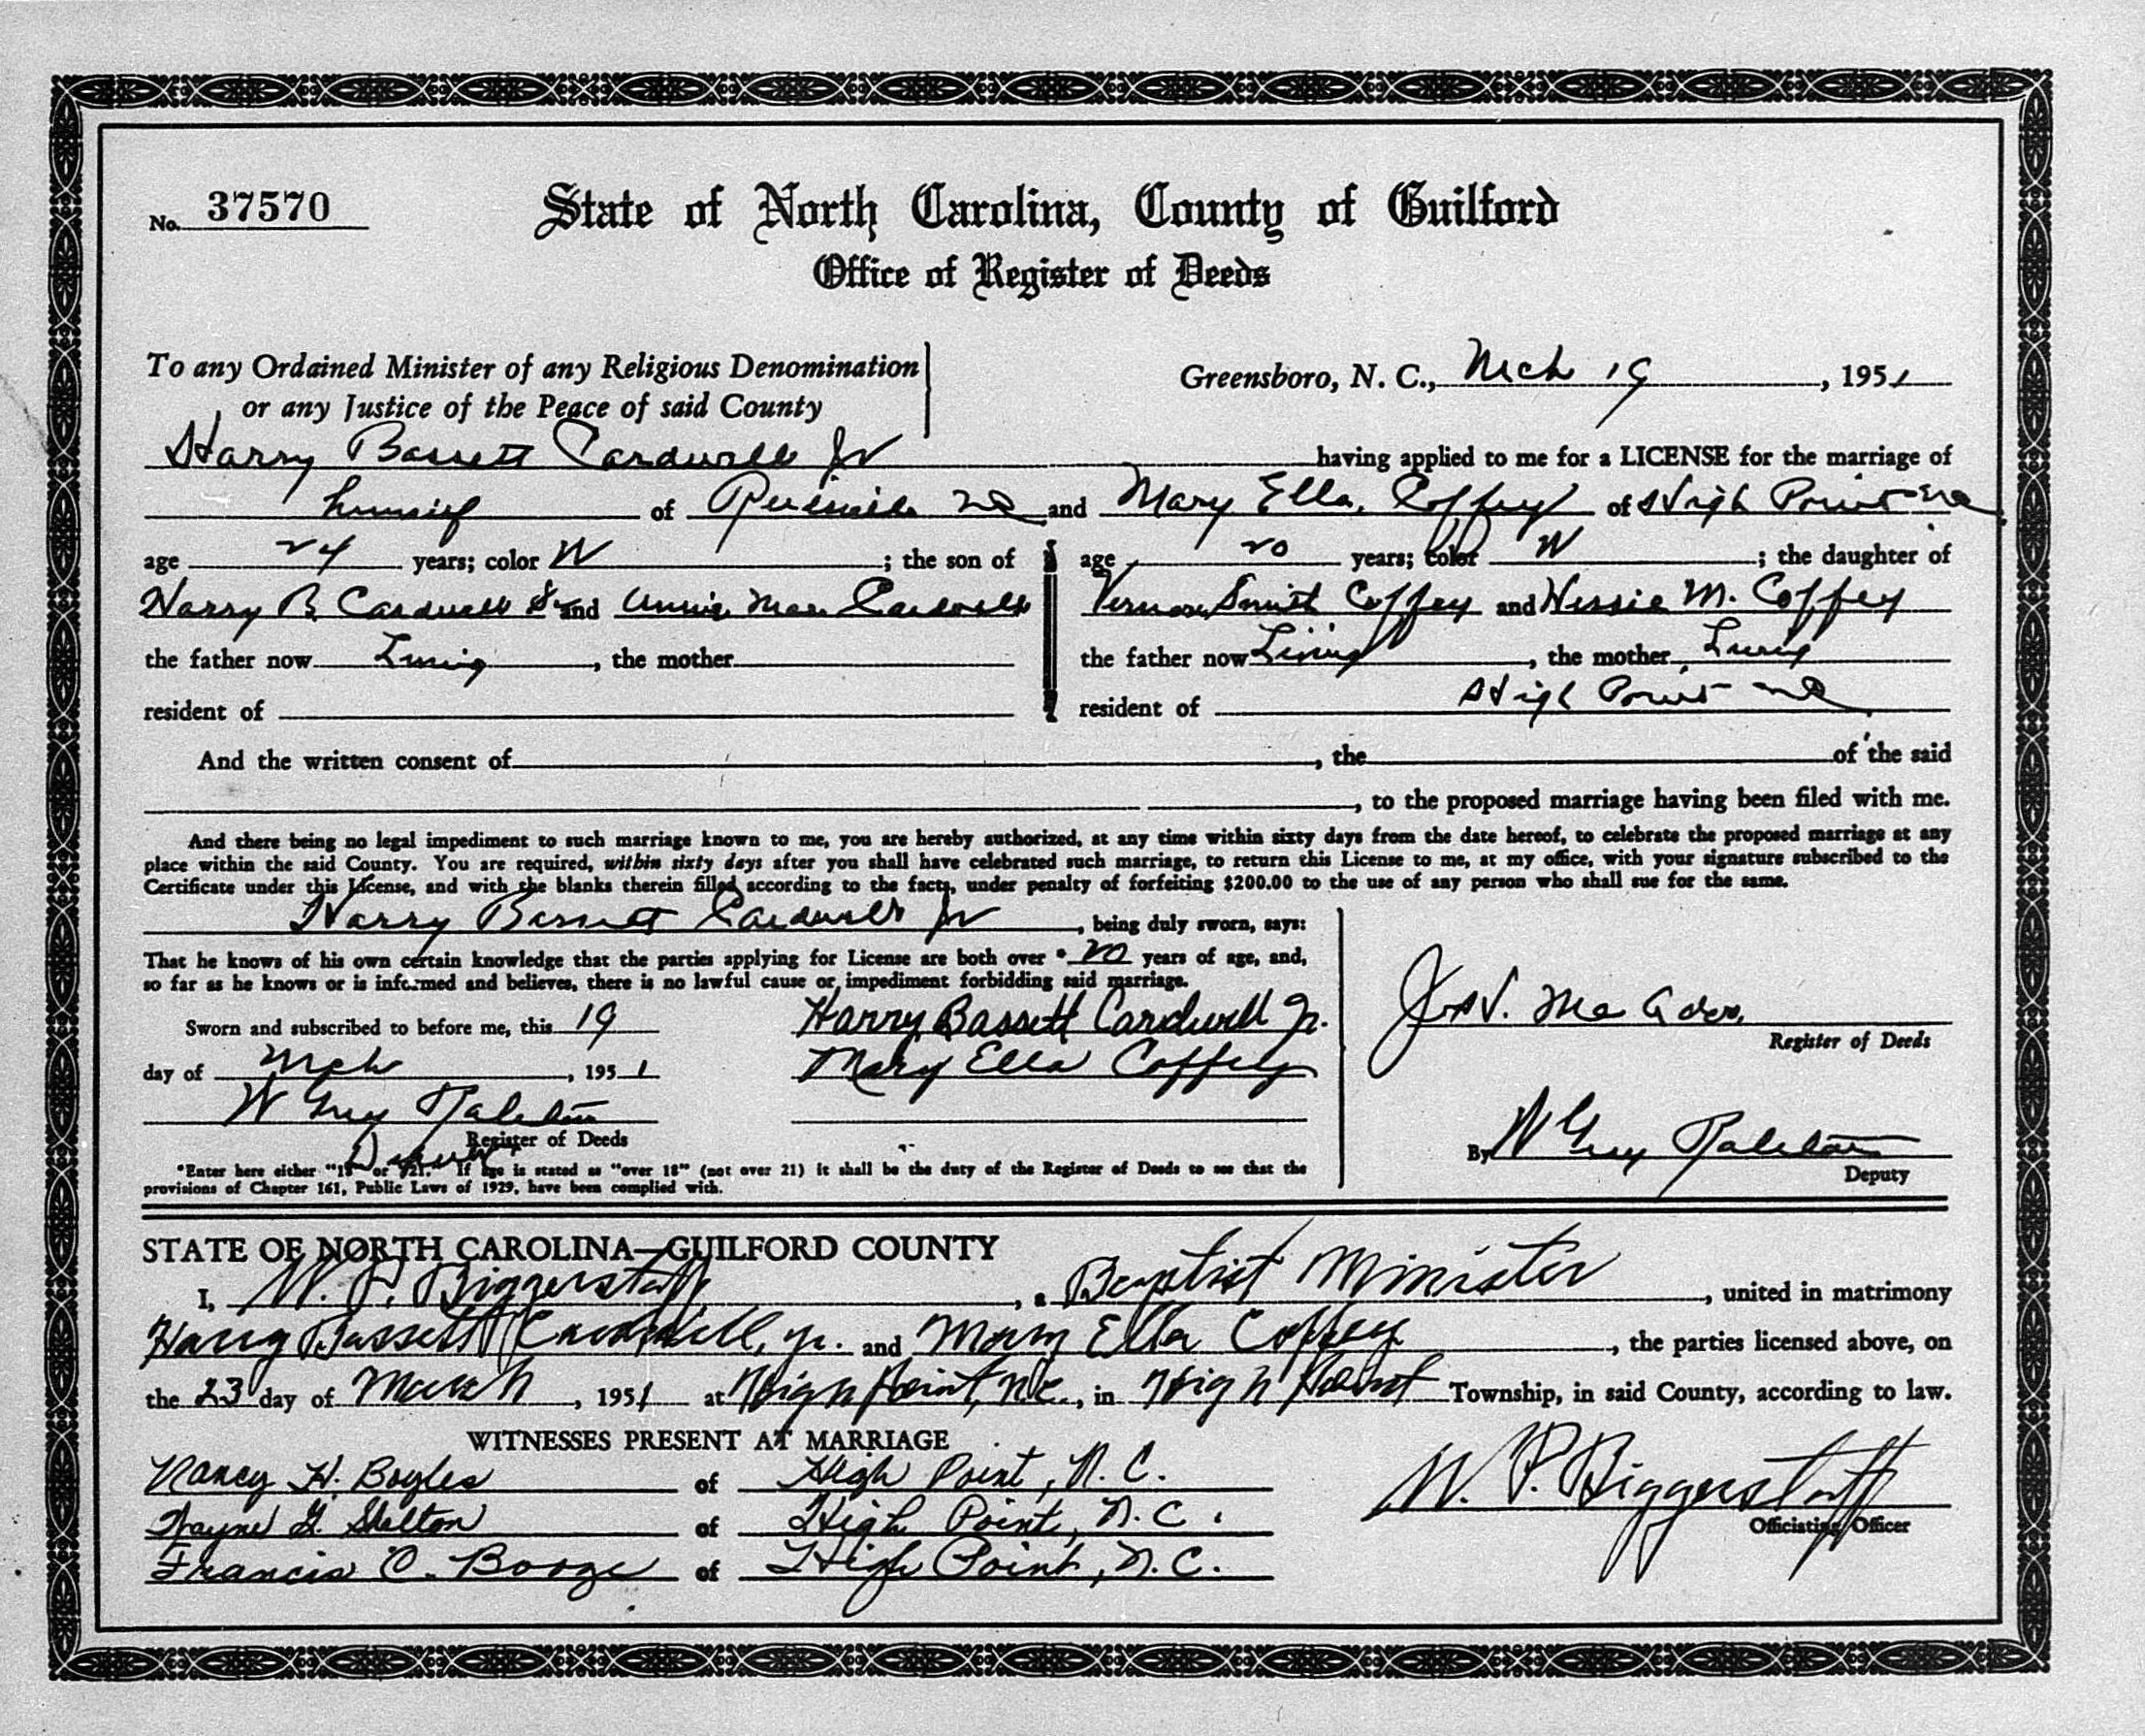 No. 37570
State of North Carolina, County of Guilford
Office of Register of Deeds
To any Ordained Minister of any Religious Denomination
or any Justice of the Peace of said County
Greensboro, N. C., Mch 19, 1951
Harry Bassett Cardwell Jr having applied to me for a LICENSE for the marriage of
himself of Reidsville NC and Mary Ella Coffey of High Point NC
age 24 years; color W; the son of
Harry B. Cardwell Sr and Annie Mae Cardwell
the father now Living, the mother
resident of
age 20 years; color W; the daughter of
Vernon Smith Coffey and Hessie M. Coffey
the father now Living, the mother Living
resident of High Point NC
And the written consent of , the of the said
, to the proposed marriage having been filed with me.
And there being no legal impediment to such marriage known to me, you are hereby authorized, at any time within sixty days from the date hereof, to celebrate the proposed marriage at any
place within the said County. You are required, within sixty days after you shall have celebrated such marriage, to return this License to me, at my office, with your signature subscribed to the
Certificate under this License, and with the blanks therein filled according to the facts, under penalty of forfeiting $200.00 to the use of any person who shall sue for the same.
Harry Bassett Cardwell Jr, being duly sworn, says:
That he knows of his own certain knowledge that the parties applying for License are both over * 20 years of age, and,
so far as he knows or is informed and believes, there is no lawful cause or impediment forbidding said marriage.
Sworn and subscribed to before me, this 19
day of Mch, 1951
W Guy Ralston
Deputy Register of Deeds
Harry Bassett Cardwell Jr.
Mary Ella Coffey
*Enter here either "18" or "21." If age is stated as "over 18" (not over 21) it shall be the duty of the Register of Deeds to see that the
provisions of Chapter 161, Public Laws of 1929, have been complied with.
Register of Deeds
By W Guy Ralston
Deputy
STATE OF NORTH CAROLINA—GUILFORD COUNTY
I, W. P. Biggerstaff, a Baptist Minister, united in matrimony
Harry Bassett Cardwell, Jr. and Mary Ella Coffey, the parties licensed above, on
the 23 day of March, 1951 at High Point, N.C., in High Point Township, in said County, according to law.
WITNESSES PRESENT AT MARRIAGE
Nancy H. Boyles of High Point, N. C.
Wayne G. Shelton of High Point, N. C.
Francis C. Booze of High Point, N. C.
W. P. Biggerstaff
Officiating Officer